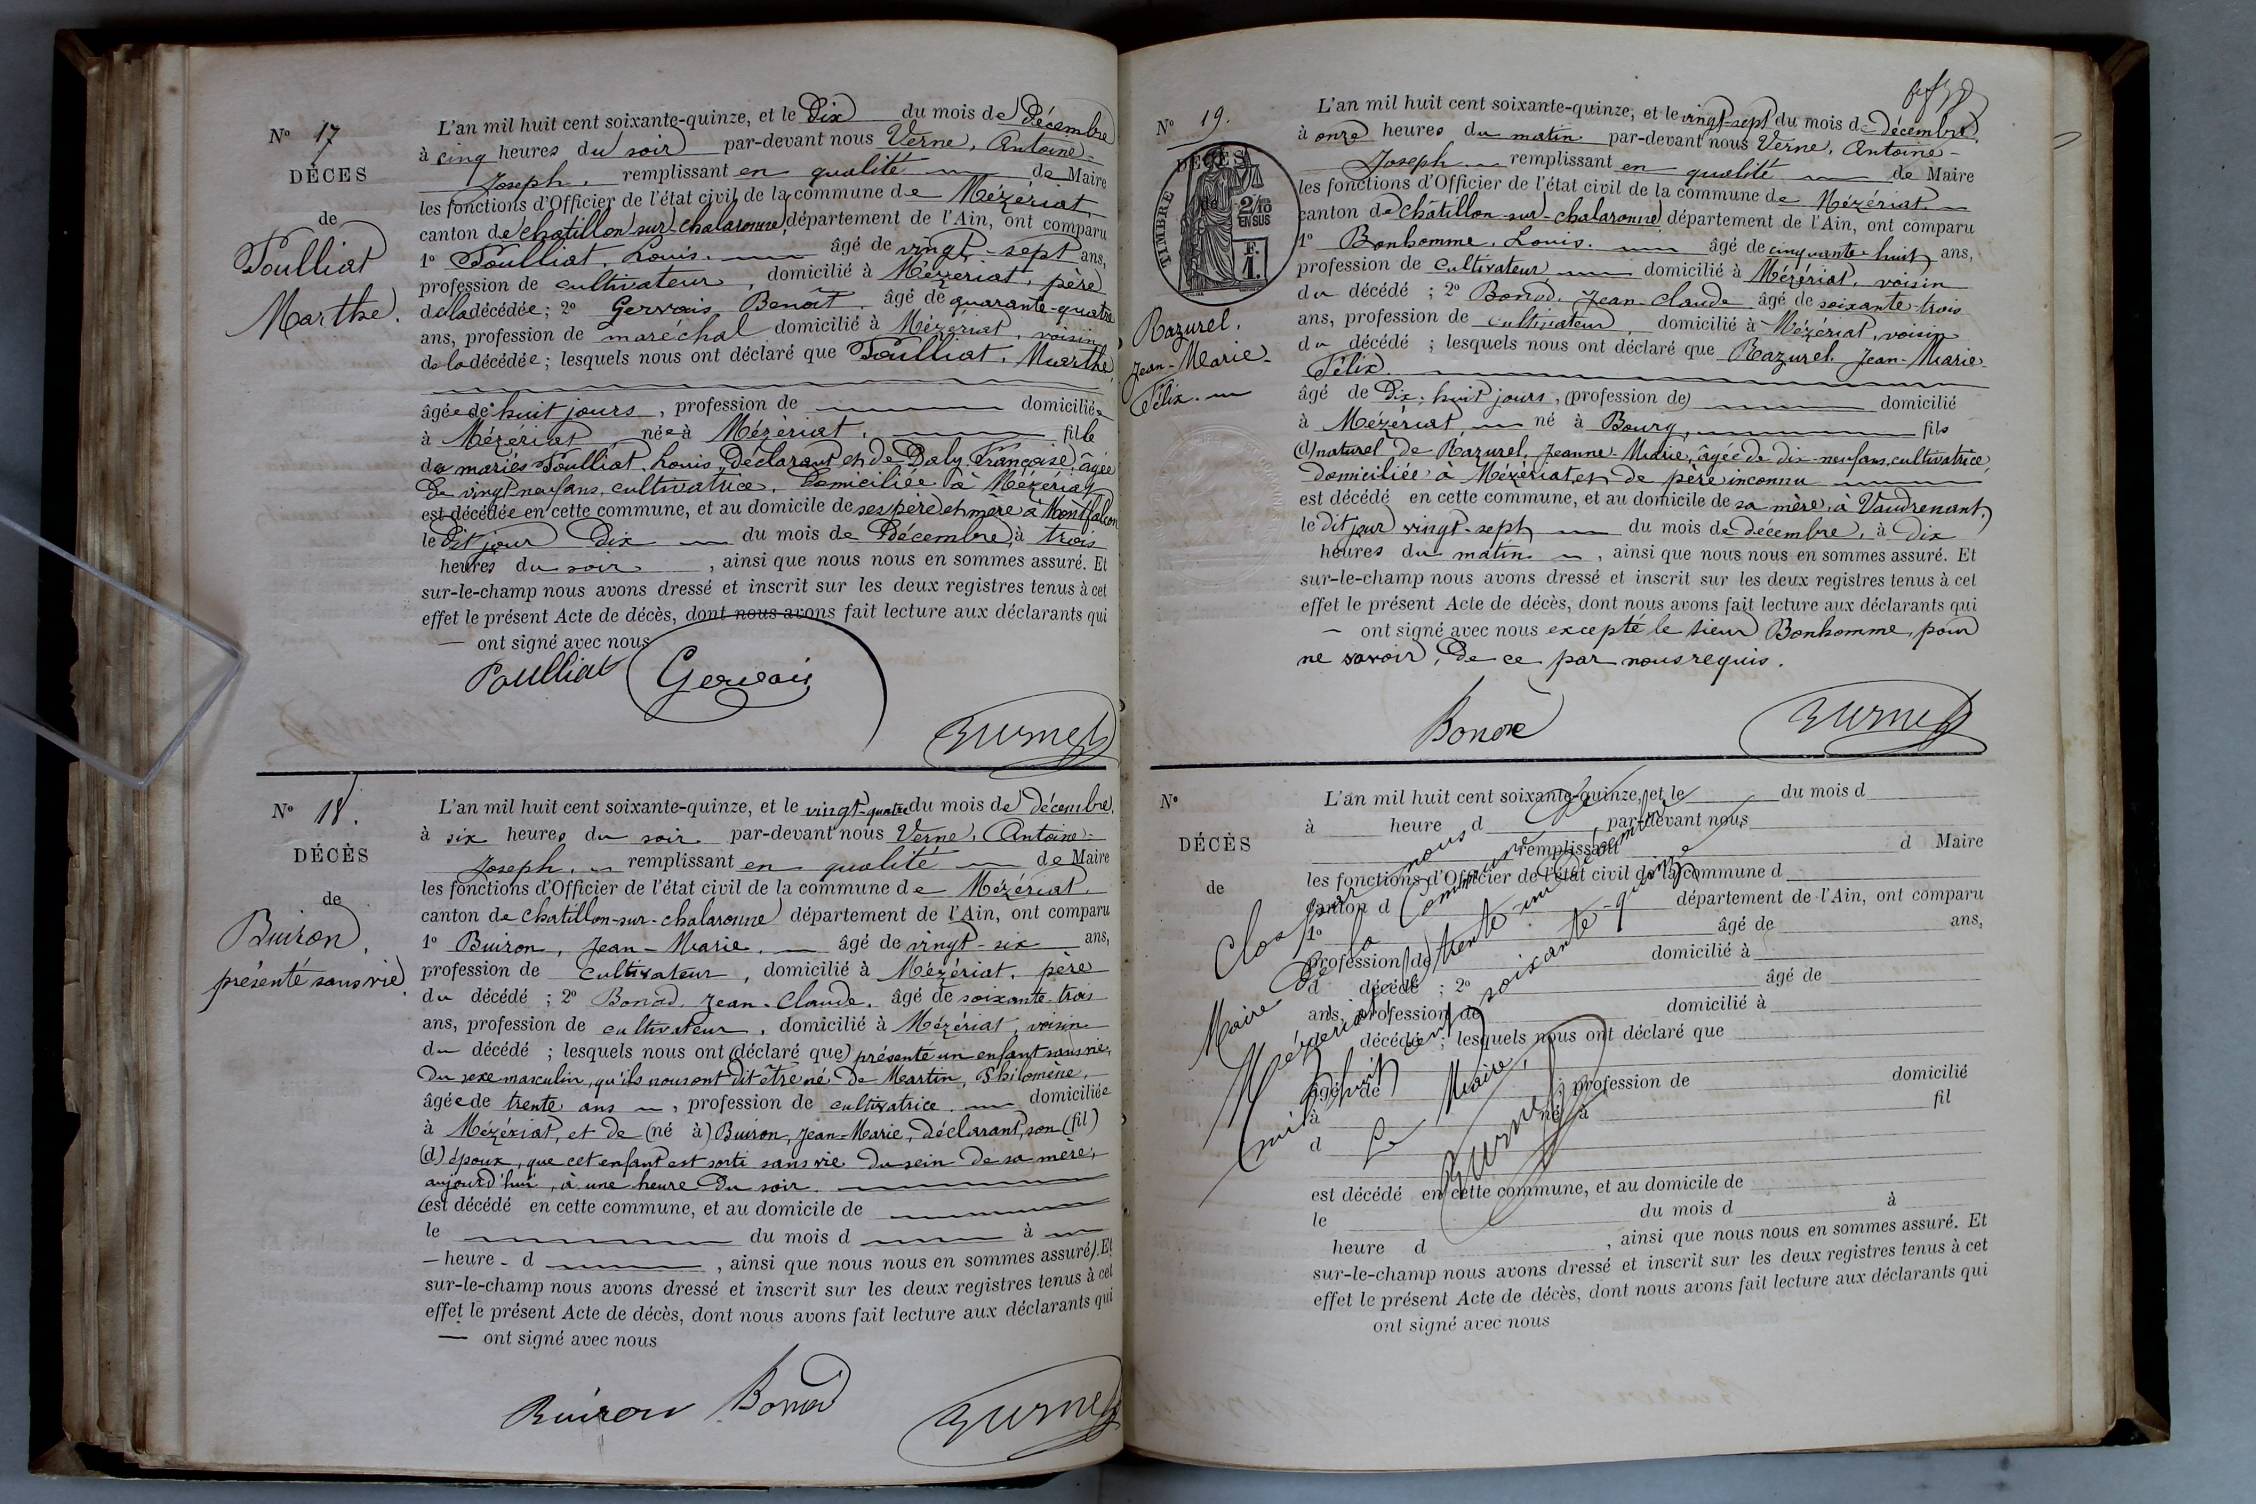 N° 17
DÉCES
de
Poulliat
Marthe.
L'an mil huit cent soixante-quinze, et le Dix du mois de Décembre
à cinq heures du soir par-devant nous Verne, Antoine-
Joseph, remplissant en qualité de Maire
les fonctions d'Officier de l'état civil de la commune de Mézériat,
canton de Chatillon sur chalaronne, département de l'Ain, ont comparu
1° Poulliat, Louis. âgé de vingt-sept ans,
profession de cultivateur, domicilié à Mézériat, père
de la décédée; 2° Gervais Benoît, âgé de quarante-quatre
ans, profession de maréchal domicilié à Mézériat, voisin
de la décédée; lesquels nous ont déclaré que Poulliat, Marthe,
âgée de huit jours, profession de domiciliée
à Mézériat née à Mézériat, fille
des mariés Poulliat, Louis, Déclarant et de Daly Françoise, âgée
de vingt-neuf ans, cultivatrice, Domiciliée à Mézériat
est décédée en cette commune, et au domicile de ses père et mère à Montfalcon
le dit jour Dix du mois de Décembre, à trois
heures du soir, ainsi que nous nous en sommes assuré. Et
sur-le-champ nous avons dressé et inscrit sur les deux registres tenus à cet
effet le présent Acte de décès, dont nous avons fait lecture aux déclarants qui
— ont signé avec nous
Poulliat Gervais
Verne
N° 18.
DÉCÈS
de
Buiron,
présenté sans vie
L'an mil huit cent soixante-quinze, et le vingt-quatre du mois de Décembre,
à six heures du soir par-devant nous Verne, Antoine-
Joseph, remplissant en qualité de Maire
les fonctions d'Officier de l'état civil de la commune de Mézériat,
canton de Chatillon-sur-chalaronne département de l'Ain, ont comparu
1° Buiron, Jean-Marie, âgé de vingt-six ans,
profession de cultivateur, domicilié à Mézériat, père
du décédé; 2° Bonod, Jean-Claude, âgé de soixante-trois
ans, profession de cultivateur, domicilié à Mézériat, voisin
du décédé; lesquels nous ont (déclaré que) présenté un enfant sans vie,
du sexe masculin, qu'ils nous ont dit être né de Martin, Philomène,
âgée de trente ans, profession de cultivatrice, domiciliée
à Mézériat, et de (né à) Buiron, Jean-Marie, déclarant, son (fil)
(d) époux, que cet enfant est sorti sans vie du sein de sa mère,
aujourd'hui, à une heure du soir.
(est décédé en cette commune, et au domicile de
le du mois d à
— heure - d , ainsi que nous nous en sommes assuré). Et
sur-le-champ nous avons dressé et inscrit sur les deux registres tenus à cet
effet le présent Acte de décès, dont nous avons fait lecture aux déclarants qui
— ont signé avec nous
Buiron Bonod
Verne
N° 19.
DÉCÈS
de
TIMBRE
2/10
EN SUS
F.
1.
Razurel,
Jean-Marie-
Félix.
L'an mil huit cent soixante-quinze, et le vingt-sept du mois de décembre,
à onze heures du matin par-devant nous Verne, Antoine-
Joseph remplissant en qualité de Maire
les fonctions d'Officier de l'état civil de la commune de Mézériat,
canton de Châtillon-sur-chalaronne département de l'Ain, ont comparu
1° Bonhomme, Louis. âgé de cinquante-huit ans,
profession de cultivateur domicilié à Mézériat, voisin
du décédé; 2° Bonod, Jean-Claude âgé de soixante-trois
ans, profession de cultivateur, domicilié à Mézériat, voisin
du décédé; lesquels nous ont déclaré que Razurel, Jean-Marie-
Félix.
âgé de Dix-huit jours, (profession de) domicilié
à Mézériat, né à Bourg, fils
(d) naturel de Razurel, Jeanne-Marie, âgée de dix-neuf ans, cultivatrice,
domiciliée à Mézériat, et de père inconnu
est décédé en cette commune, et au domicile de sa mère, à Vaudrenant,
le dit jour vingt-sept du mois de décembre, à dix
heures du matin, ainsi que nous nous en sommes assuré. Et
sur-le-champ nous avons dressé et inscrit sur les deux registres tenus à cet
effet le présent Acte de décès, dont nous avons fait lecture aux déclarants qui
— ont signé avec nous excepté le sieur Bonhomme, pour
ne savoir, de ce par nous requis.
Bonod
Verne
N°
DÉCÈS
de
L'an mil huit cent soixante-quinze, et le du mois d
à heure d par-devant nous
remplissant d Maire
les fonctions d'Officier de l'état civil de la commune d
canton d département de l'Ain, ont comparu
1° âgé de ans,
profession de domicilié à
d décédé ; 2° âgé de
ans, profession de domicilié à
d décédé ; lesquels nous ont déclaré que
âgé de , profession de domicilié
à né à fil
d
est décédé en cette commune, et au domicile de
le du mois d à
heure d , ainsi que nous nous en sommes assuré. Et
sur-le-champ nous avons dressé et inscrit sur les deux registres tenus à cet
effet le présent Acte de décès, dont nous avons fait lecture aux déclarants qui
ont signé avec nous
Clos par nous
Maire de la Commune de
Mézériat, le trente-un décembre
mil huit cent soixante-quinze
Le Maire,
Verne